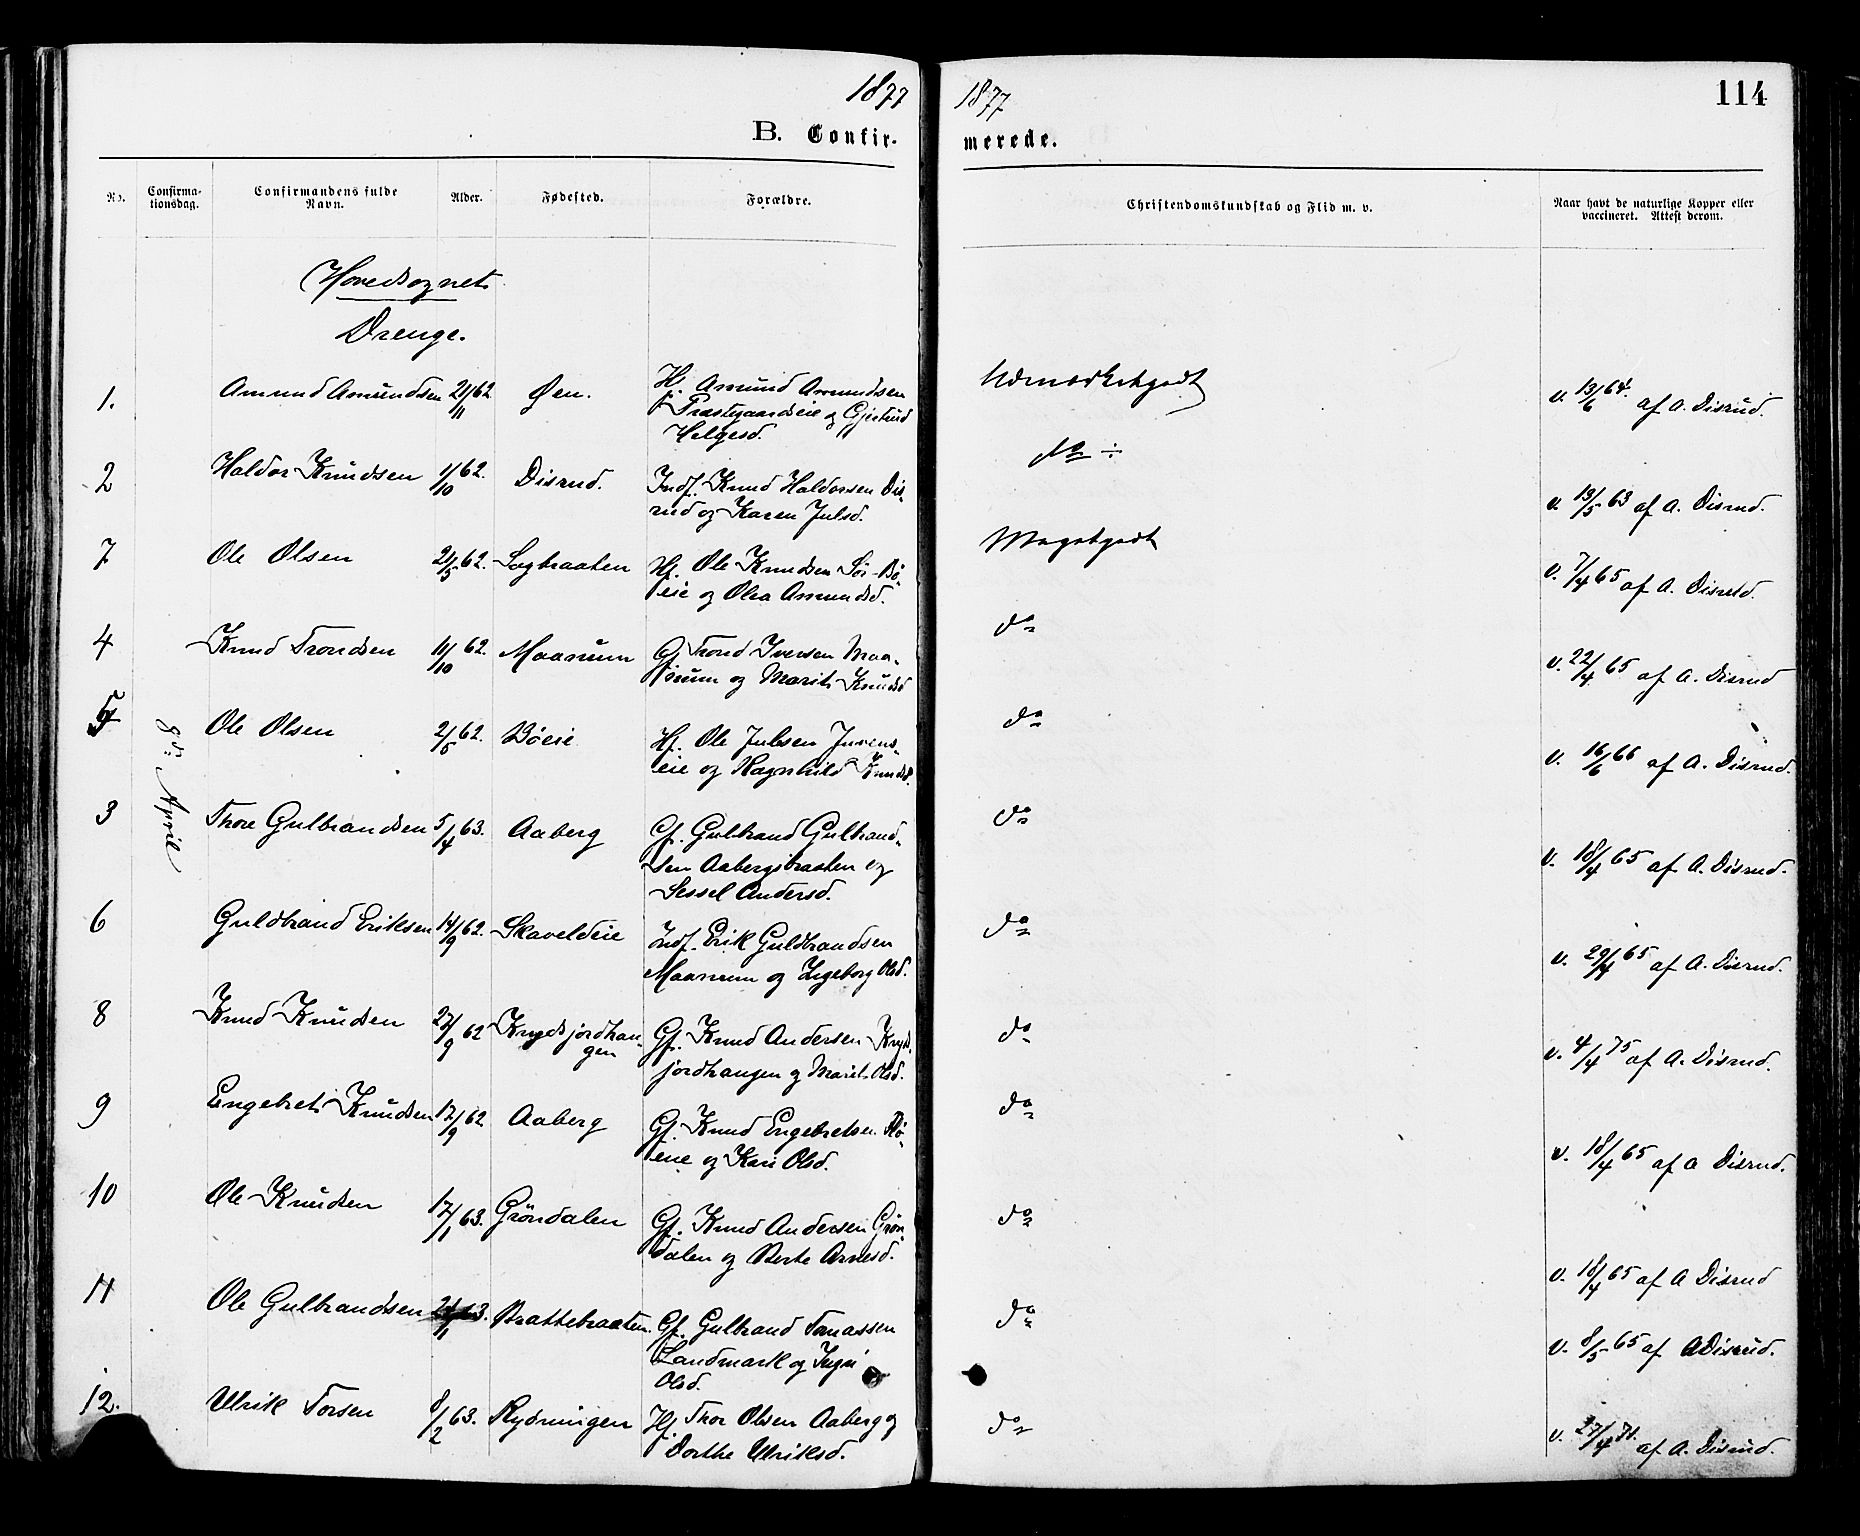 1877
B. Confir-
No.
Confirma-
tionsdag.
Confirmandens fulde
Navn.
Alder.
Fødested.
Forældre.
Hovedsognet
Drenge.
8de April
1. Amund Amundsen 21/11 62 Øen. Hf. Amund Amundsen
Præstgaardseie og Gjertrud
Helgesd.
2 Haldor Knudsen 1/10 62. Disrud. Indf. Knud Haldorsen Dis-
rud og Karen Julsd.
7 Ole Olsen 21/5 62. Sagbraaten Hf. Ole Knudsen Sør-Bø-
eie og Olea Amundsd.
4 Knud Trondsen 11/10 62. Maanum Gf. Trond Iversen Maa-
num og Marit Knudsd
5 Ole Olsen 2/5 62. Bøeie Hf. Ole Julsen
eie og Ragnhild Knudsd.
3 Thore Gulbrandsen 5/4 63. Aaberg Gf. Gulbrand Gulbrand-
sen Aabergsbraaten og
Sessel Andersd.
6 Guldbrand Eriksen 14/9 62. Skaveldeie Indf. Erik Guldbrandsen
Maanum og Ingeborg Olsd.
8 Knud Knudsen 27/9 62 Krydsjordhau-
gen Gf. Knud Andersen Kryds-
jordhaugen og Marit Olsd.
9 Engebret Knudsen 17/9 62 Aaberg Gf. Knud Engebretsen Bø-
eie og Kari Olsd.
10 Ole Knudsen 17/1 63. Grøndalen Gf. Knud Andersen Grøn-
dalen og Berte Arnesd.
11 Ole Gulbrandsen Brattebraaten. Gf. Gulbrand Tomassen
Landmark og
Olsd.
12. Ulrik Torsen 8/2 63. Rydningen Hf. Thor Olsen Aaberg og
Dorthe Ulriksd.
1877
114
merede.
Christendomskundskab og Flid m. v.
Naar havt de naturlige Kopper eller
vaccineret. Attest derom.
Udmærketgodt v. 13/6 64. af A. Disrud.
do ÷ v. 13/5 63 af A. Disrud.
Megetgodt v. 7/4 65 af A. Disrud.
do v. 22/4 65 af A. Disrud
do v. 16/6 66 af A. Disrud.
do v. 18/4 65 af A. Disrud.
do v. 29/4 65 af A. Disrud.
do v. 4/4 75 af A. Disrud.
do v. 18/4 65 af A Disrud.
do v. 18/4 65 af A Disrud
do v. 8/5 65 af A Disrud.
do v. 27/4 af A. Disrud.